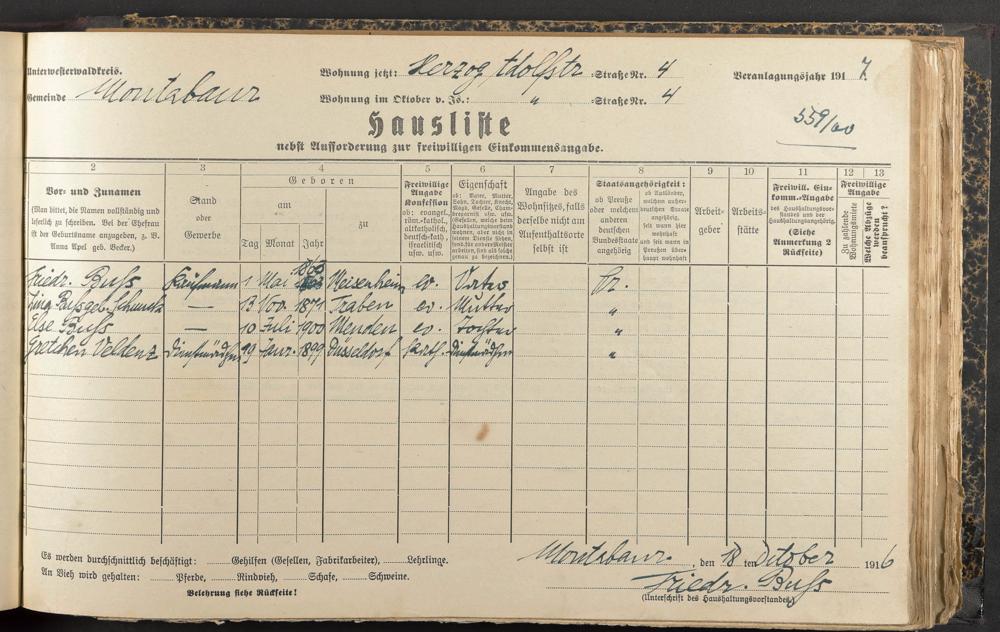 Unterwesterwaldkreis.
Wohnung jetzt: Herzog Adolfstr =Straße Nr. 4
Veranlagungsjahr 1917.
Gemeinde Montabaur
Wohnung im Oktober v. Js.: " =Straße Nr. 4
559/00
Hausliste
nebst Aufforderung zur freiwilligen Einkommensangabe.
2 3 4 5 6 7 8 9 10 11 12 13
Vor- und Zunamen
(Man bittet, die Namen vollständig und
leserlich zu schreiben. Bei der Ehefrau
ist der Geburtsname anzugeben, z. B.
Anna Apel geb. Becker.)
Stand
oder
Gewerbe
Geboren
am
Tag Monat Jahr
zu
Freiwillige
Angabe
Konfession
ob: evangel.,
röm.-kathol.,
altkatholisch,
deutsch-kath.,
israelitisch
usw. usw.
Eigenschaft
ob: Vater, Mutter,
Sohn, Tochter, Knecht,
Magd, Geselle,
Angabe des
Wohnsitzes, falls
derselbe nicht am
Aufenthaltsorte
selbst ist
Staatsangehörigkeit:
ob Preuße
oder welchem
anderen
deutschen
Bundesstaate
angehörig
ob Ausländer,
welchem außer-
deutschen Staate
angehörig,
seit wann hier
wohnhaft
und seit wann in
Preußen über-
haupt wohnhaft
Arbeit-
geber
Arbeits-
stätte
Freiwill. Ein-
komm.-Angabe
des Haushaltungsvor-
standes und der
Haushaltungsangehörig.
(Siehe
Anmerkung 2
Rückseite)
Freiwillige
Angabe
Zu zahlende
Wohnungsmiete
Welche Abzüge
werden
beansprucht?
Friedr. Buss Kaufmann 1 Mai 1863 Meisenheim ev. Vater Pr.
Buss geb. Schmuck — 13 Nov. 1871 Traben ev. Mutter "
Else Buss — 10 Juli 1900 Menden ev. Tochter "
Gretchen Veldenz Dienstmädchen 29 Janr. 1899 Düsseldorf kath. Dienstmädchen "
Es werden durchschnittlich beschäftigt: Gehilfen (Gesellen, Fabrikarbeiter), Lehrlinge.
An Vieh wird gehalten: Pferde, Rindvieh, Schafe, Schweine.
Belehrung siehe Rückseite!
Montabaur, den 18ten October 1916
Friedr. Buss
(Unterschrift des Haushaltungsvorstandes.)